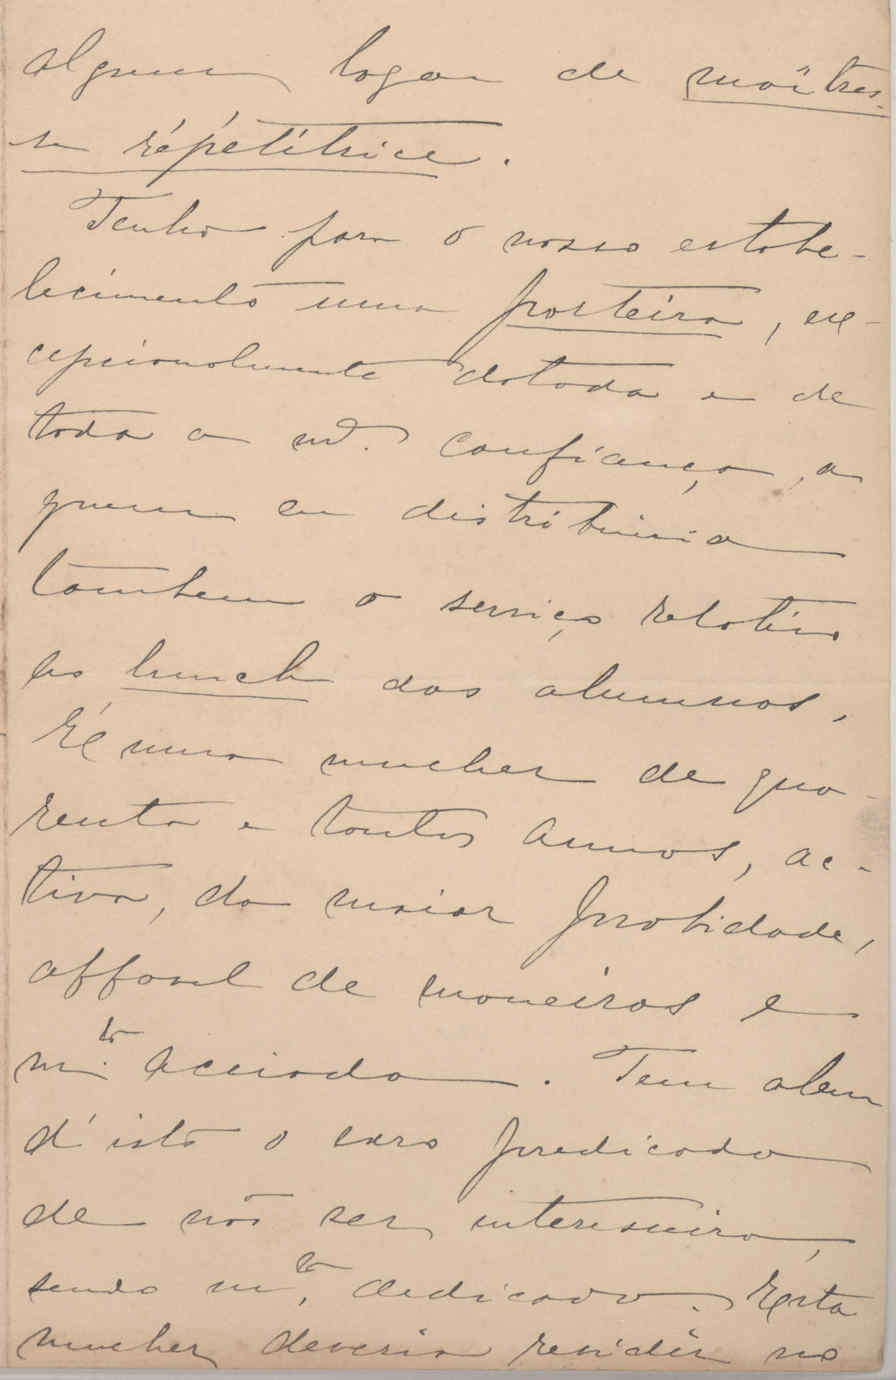 algum logar de maîtres-
se répétitrice.
Tenho para o nosso estabe-
lecimento uma porteira, ex-
cepcionalmente dotada e de
toda a mª. confiança, a
quem eu distribuiria
tambem o serviço relativo
ao lunch dos alumnos.
É uma mulher de qua-
renta e tantos annos, ac-
tiva, da maior probidade,
affavel de maneiras e
m.to aceiada. Tem alem
d'isto o raro predicado
de não ser interesseira,
sendo m.to dedicada. Esta
mulher deveria residir no